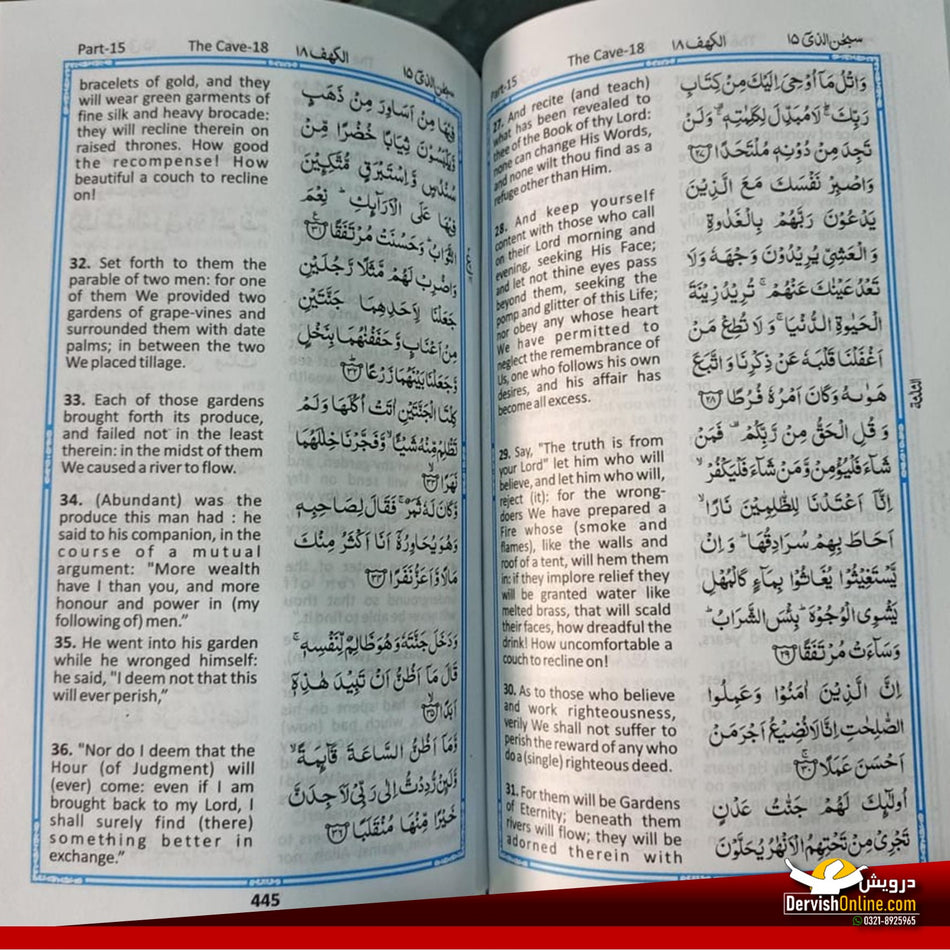 Part-15 The Cave-18 الكهف ١٨ سبحٰن الذي ١٥
27. And recite (and teach)
what has been revealed to
thee of the Book of thy Lord:
none can change His Words,
and none wilt thou find as a
refuge other than Him.
28. And keep yourself
content with those who call
on their Lord morning and
evening, seeking His Face;
and let not thine eyes pass
beyond them, seeking the
pomp and glitter of this Life;
nor obey any whose heart
We have permitted to
neglect the remembrance of
Us, one who follows his own
desires, and his affair has
become all excess.
29. Say, "The truth is from
your Lord" let him who will
believe, and let him who will,
reject (it): for the wrong-
doers We have prepared a
Fire whose (smoke and
flames), like the walls and
roof of a tent, will hem them
in: if they implore relief they
will be granted water like
melted brass, that will scald
their faces, how dreadful the
drink! How uncomfortable a
couch to recline on!
30. As to those who believe
and work righteousness,
verily We shall not suffer to
perish the reward of any who
do a (single) righteous deed.
31. For them will be Gardens
of Eternity; beneath them
rivers will flow; they will be
adorned therein with
وَاتْلُ مَآ اُوْحِيَ اِلَيْكَ مِنْ كِتَابِ
رَبِّكَ ۚ لَا مُبَدِّلَ لِكَلِمٰتِهٖ ۚ وَلَنْ
تَجِدَ مِنْ دُوْنِهٖ مُلْتَحَدًا ۝٢٧
وَاصْبِرْ نَفْسَكَ مَعَ الَّذِيْنَ
يَدْعُوْنَ رَبَّهُمْ بِالْغَدٰوةِ
وَالْعَشِيِّ يُرِيْدُوْنَ وَجْهَهٗ وَلَا
تَعْدُ عَيْنٰكَ عَنْهُمْ ۚ تُرِيْدُ زِيْنَةَ
الْحَيٰوةِ الدُّنْيَا ۚ وَلَا تُطِعْ مَنْ
اَغْفَلْنَا قَلْبَهٗ عَنْ ذِكْرِنَا وَاتَّبَعَ
هَوٰىهُ وَكَانَ اَمْرُهٗ فُرُطًا ۝٢٨
وَقُلِ الْحَقُّ مِنْ رَّبِّكُمْ ۫ فَمَنْ
شَآءَ فَلْيُؤْمِنْ وَّمَنْ شَآءَ فَلْيَكْفُرْ ۙ
اِنَّآ اَعْتَدْنَا لِلظّٰلِمِيْنَ نَارًا ۙ
اَحَاطَ بِهِمْ سُرَادِقُهَا ؕ وَاِنْ
يَّسْتَغِيْثُوْا يُغَاثُوْا بِمَآءٍ كَالْمُهْلِ
يَشْوِي الْوُجُوْهَ ؕ بِئْسَ الشَّرَابُ ؕ
وَسَآءَتْ مُرْتَفَقًا ۝٢٩
اِنَّ الَّذِيْنَ اٰمَنُوْا وَعَمِلُوا
الصّٰلِحٰتِ اِنَّا لَا نُضِيْعُ اَجْرَ مَنْ
اَحْسَنَ عَمَلًا ۝٣٠
اُولٰٓئِكَ لَهُمْ جَنّٰتُ عَدْنٍ
تَجْرِيْ مِنْ تَحْتِهِمُ الْاَنْهٰرُ يُحَلَّوْنَ
Part-15 The Cave-18 الكهف ١٨ سبحٰن الذي ١٥
bracelets of gold, and they
will wear green garments of
fine silk and heavy brocade:
they will recline therein on
raised thrones. How good
the recompense! How
beautiful a couch to recline
on!
32. Set forth to them the
parable of two men: for one
of them We provided two
gardens of grape-vines and
surrounded them with date
palms; in between the two
We placed tillage.
33. Each of those gardens
brought forth its produce,
and failed not in the least
therein: in the midst of them
We caused a river to flow.
34. (Abundant) was the
produce this man had : he
said to his companion, in the
course of a mutual
argument: "More wealth
have I than you, and more
honour and power in (my
following of) men.”
35. He went into his garden
while he wronged himself:
he said, "I deem not that this
will ever perish,”
36. "Nor do I deem that the
Hour (of Judgment) will
(ever) come: even if I am
brought back to my Lord, I
shall surely find (there)
something better in
exchange.”
فِيْهَا مِنْ اَسَاوِرَ مِنْ ذَهَبٍ
وَّيَلْبَسُوْنَ ثِيَابًا خُضْرًا مِّنْ
سُنْدُسٍ وَّاِسْتَبْرَقٍ مُّتَّكِـِٕيْنَ
فِيْهَا عَلَى الْاَرَآىِٕكِ ؕ نِعْمَ
الثَّوَابُ ؕ وَحَسُنَتْ مُرْتَفَقًا ۝٣١
وَاضْرِبْ لَهُمْ مَّثَلًا رَّجُلَيْنِ
جَعَلْنَا لِاَحَدِهِمَا جَنَّتَيْنِ
مِنْ اَعْنَابٍ وَّحَفَفْنٰهُمَا بِنَخْلٍ
وَّجَعَلْنَا بَيْنَهُمَا زَرْعًا ۝٣٢
كِلْتَا الْجَنَّتَيْنِ اٰتَتْ اُكُلَهَا وَلَمْ
تَظْلِمْ مِّنْهُ شَيْـًٔا ۙ وَّفَجَّرْنَا خِلٰلَهُمَا
نَهَرًا ۝٣٣
وَّكَانَ لَهٗ ثَمَرٌ ۚ فَقَالَ لِصَاحِبِهٖ
وَهُوَ يُحَاوِرُهٗٓ اَنَا اَكْثَرُ مِنْكَ
مَالًا وَّاَعَزُّ نَفَرًا ۝٣٤
وَدَخَلَ جَنَّتَهٗ وَهُوَ ظَالِمٌ لِّنَفْسِهٖ ۚ
قَالَ مَآ اَظُنُّ اَنْ تَبِيْدَ هٰذِهٖٓ
اَبَدًا ۝٣٥
وَّمَآ اَظُنُّ السَّاعَةَ قَآىِٕمَةً ۙ
وَّلَىِٕنْ رُّدِدْتُّ اِلٰى رَبِّيْ لَاَجِدَنَّ
خَيْرًا مِّنْهَا مُنْقَلَبًا ۝٣٦
445
درويش
DervishOnline.com
0321-8925965